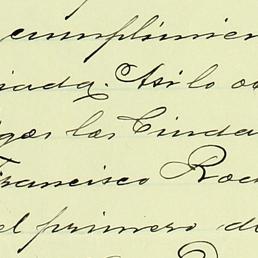 cumplimien
iada. Asi lo or
gar las Ciuda
Francisco Roc
el primero de